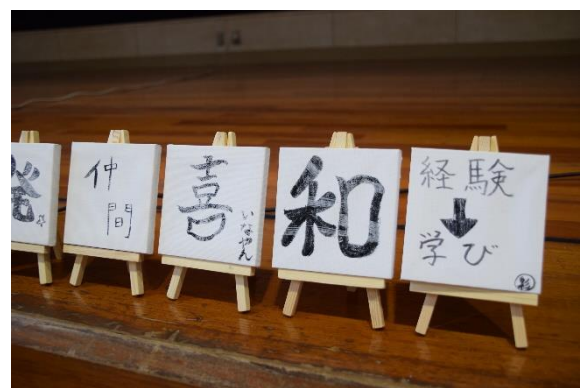 発
仲
間
喜
いなやん
和
経験
↓
学び